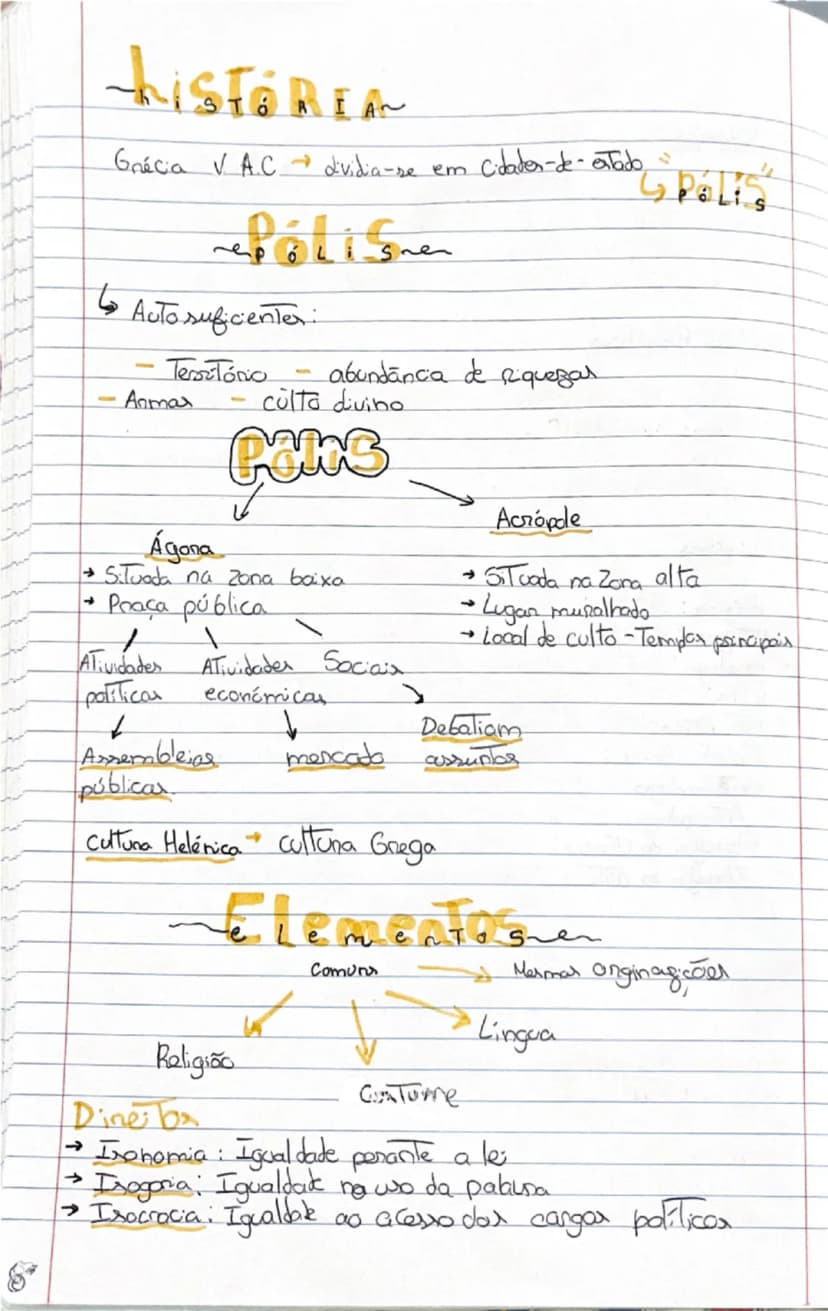 hISTÓRIA
Grécia V A.C → dividia-se em Cidades-de-estado
↳ "PóLiS"
PóLiS
↳ Autosuficientes:
- Território - abundância de riquezas
- Armas - culto divino
PóliS
Ágora
→ Situada na zona baixa
→ Praça pública
Atividades políticas
Assembleias públicas.
Atividades económicas
mercado
Sociais
Debatiam assuntos
Acrópole
→ Situada na Zona alta
→ Lugar muralhado
→ Local de culto - Templos principais
Cultura Helénica → Cultura Grega
Elementos
Comuns → Mesmas
Religião
Costume
Língua
Direitos
→ Isonomia : Igualdade perante a lei
→ Isogoria: Igualdade no uso da palavra
→ Isocrocia: Igualdade ao acesso dos cargos políticos